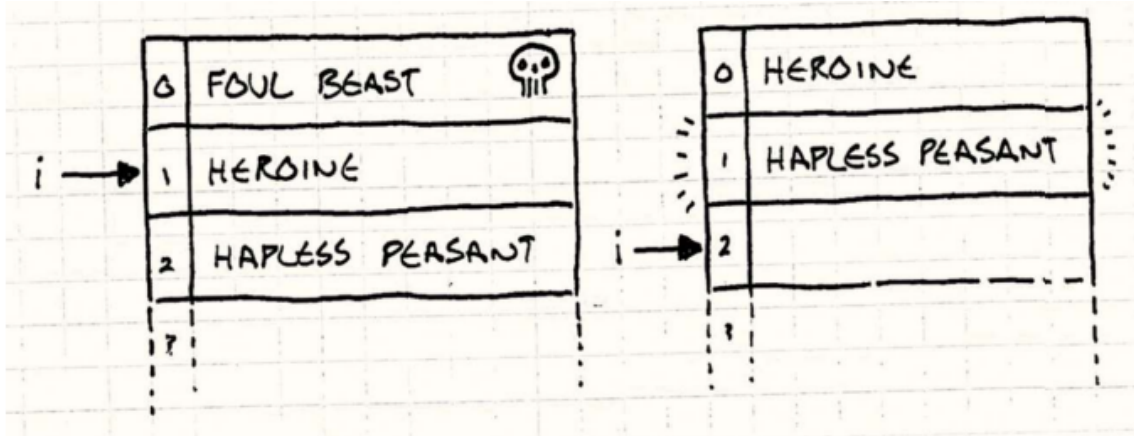 0 FOUL BEAST
i 1 HEROINE
2 HAPLESS PEASANT
?
0 HEROINE
1 HAPLESS PEASANT
i 2
?